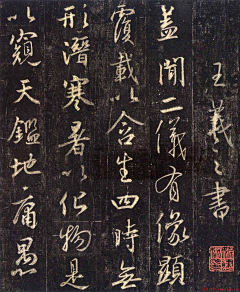 王羲之書
蓋聞二儀有像顯
覆載以含生四時無
形潛寒暑以化物是
以窺天鑑地庸愚